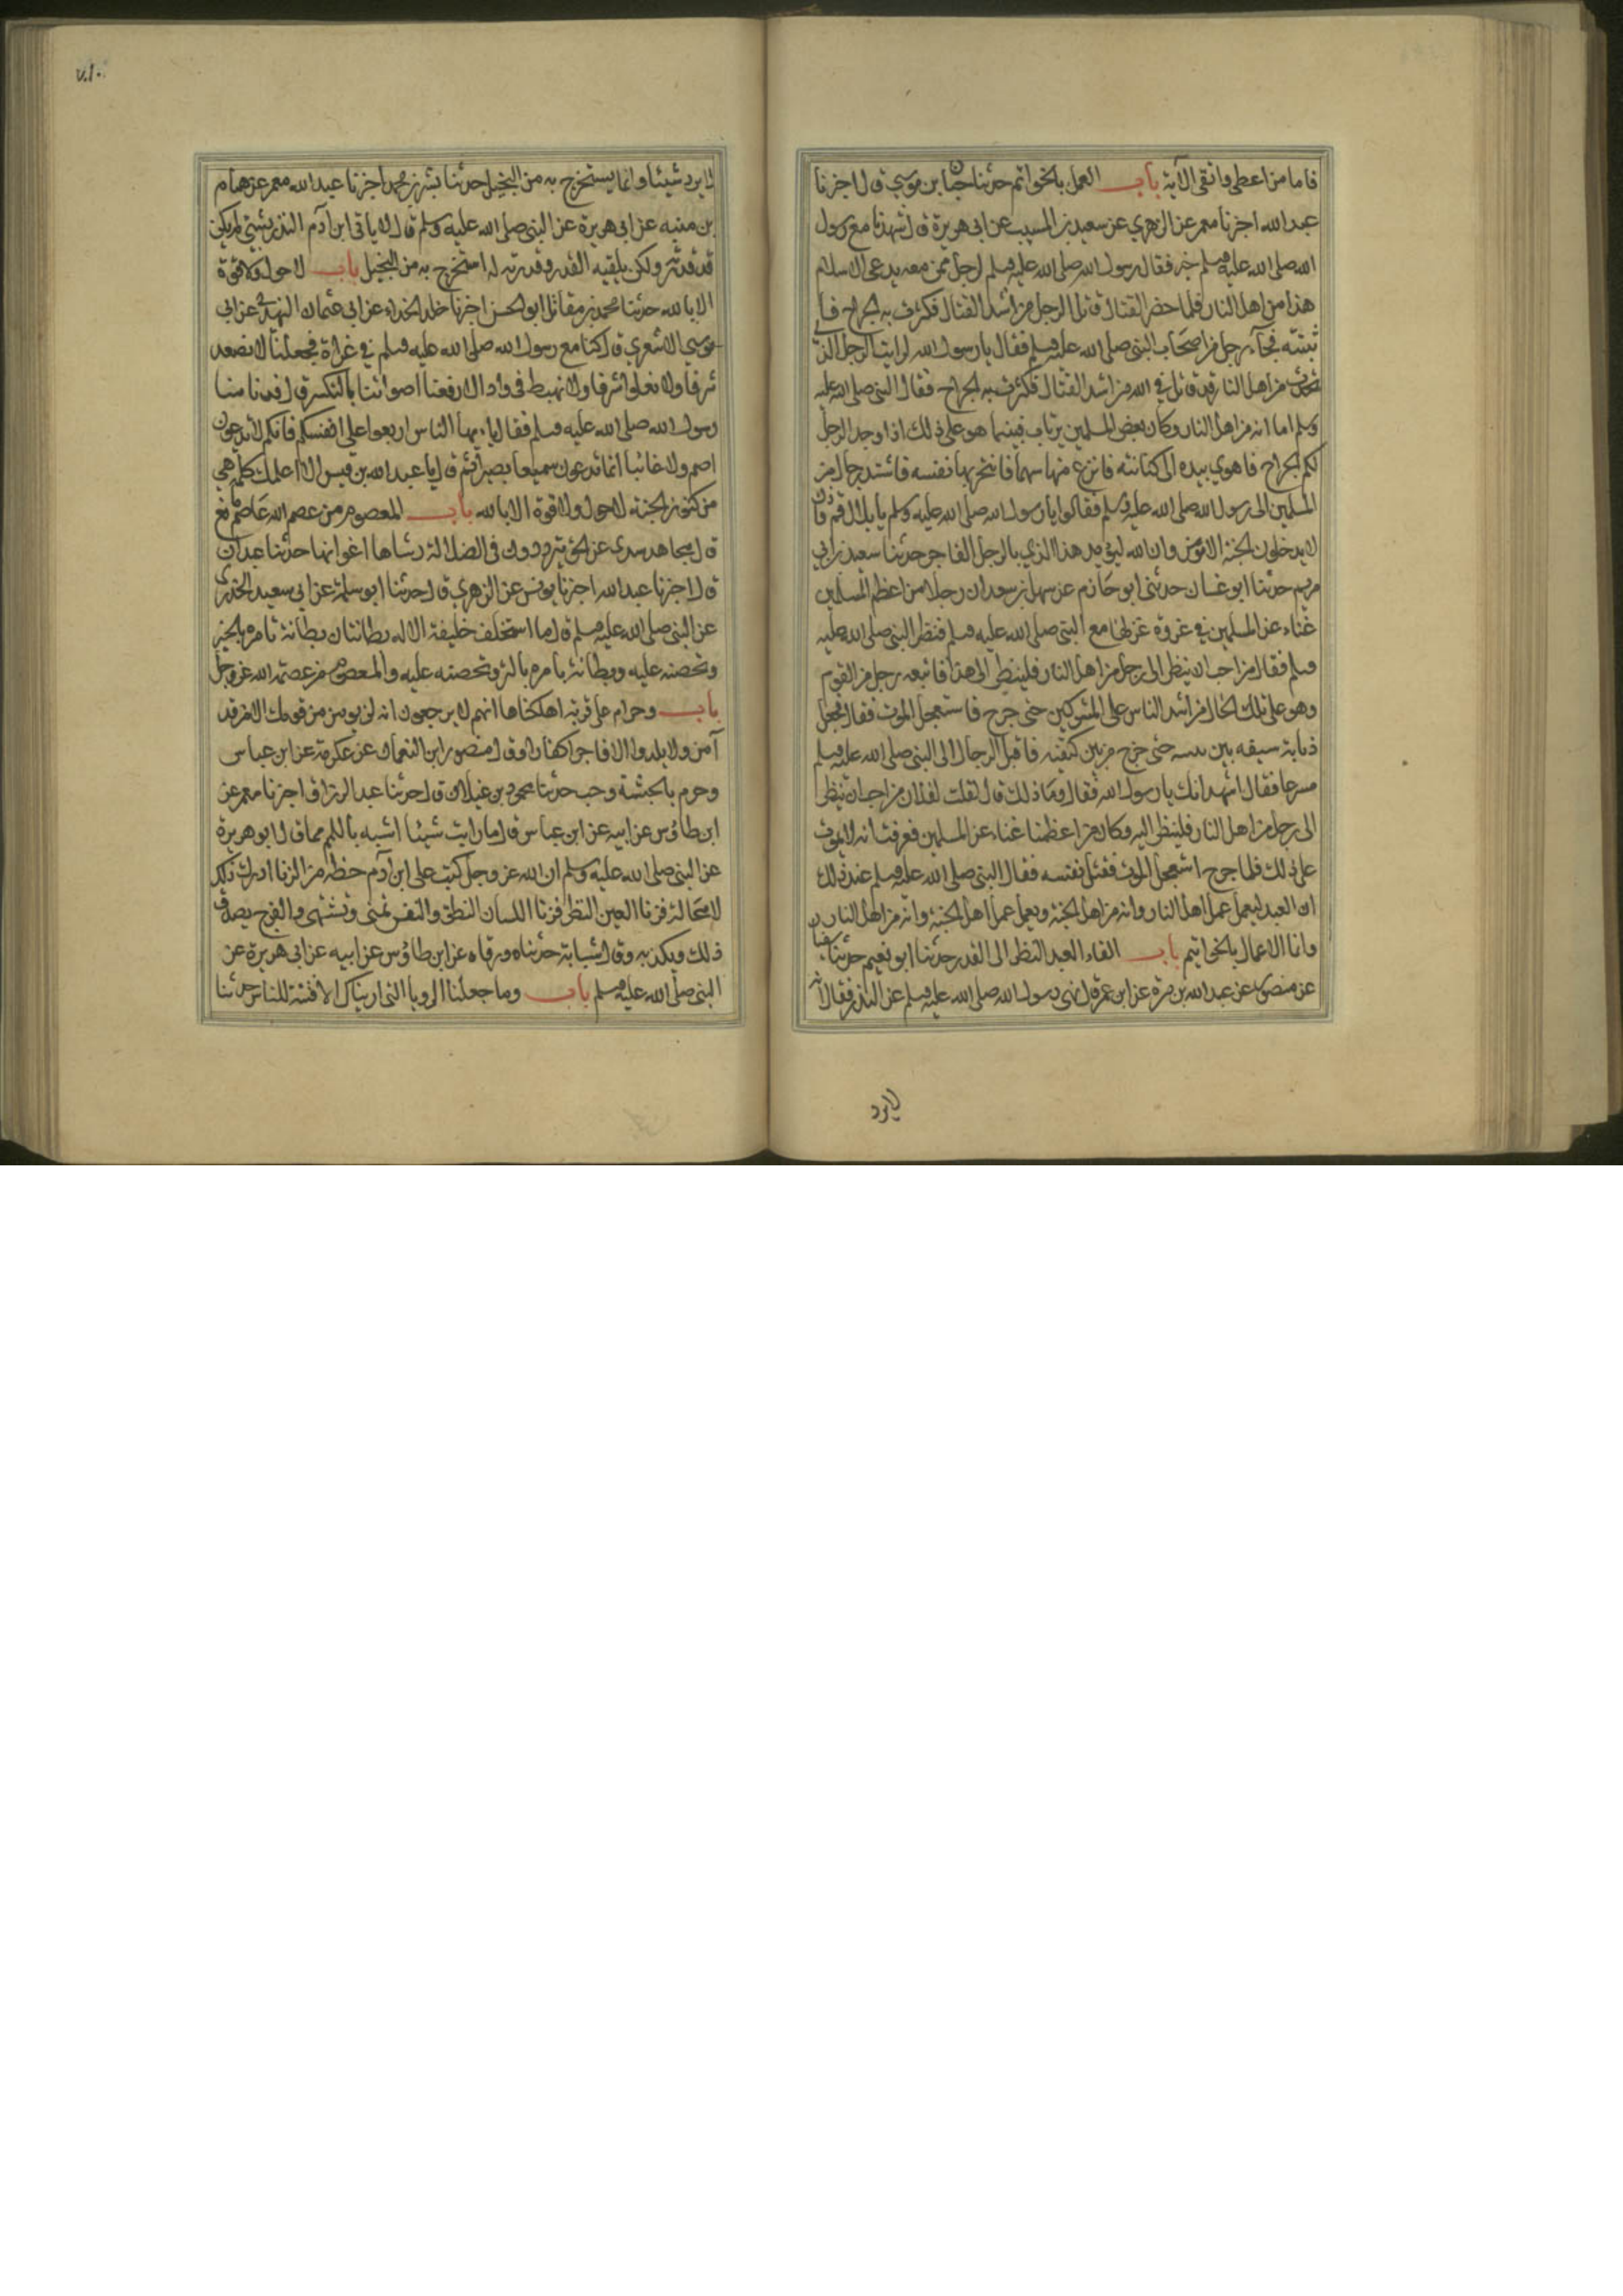 فاما من اعطى واتقى الآية باب العمل بالخواتم حدثنا حبان بن موسي قال اخبرنا
عبد الله اخبرنا معمر عن الزهري عن سعيد بن المسيب عن ابي هريرة قال شهدنا مع رسول
الله صلى الله عليه وسلم خيبر فقال رسول الله صلى الله عليه وسلم لرجل ممن معه يدعى الاسلام
هذا من اهل النار فلما حضر القتال قاتل الرجل من اشد القتال فكثرت به الجراح فا
ثبتته فجآء رجل من اصحاب النبي صلى الله عليه وسلم فقال يا رسول الله ارايت الرجل الذي
تحدثت من اهل النار قد قاتل في الله من اشد القتال فكثرت به الجراح فقال النبي صلى الله عليه
وسلم اما انه من اهل النار وكان بعض المسلمين يرتاب فبينما هو على ذلك اذ وجد الرجل
الم الجراح فاهوي بيده الى كنانته فانزع منها سهما فانتحر بها نفسه فاشتد رجال من
المسلمين الى رسول الله صلى الله عليه وسلم فقالوا يا رسول الله صلى الله عليه وسلم يا بلال قم فاذن
لا يدخل الجنة الا مؤمن وان الله ليؤيد هذا الدين بالرجل الفاجر حدثنا سعيد بن ابي
مريم حدثنا ابو غسان حدثني ابو حازم عن سهل بن سعد ان رجلا من اعظم المسلمين
غناء عن المسلمين في غزوة غزاها مع النبي صلى الله عليه وسلم فنظر النبي صلى الله عليه
وسلم فقال من احب ان ينظر الى رجل من اهل النار فلينظر الى هذا فاتبعه رجل من القوم
وهو على تلك الحال من اشد الناس على المشركين حتى جرح فاستعجل الموت فقال فجعل
ذبابة سيفه بين ثدييه حتى خرج من بين كتفيه فاقبل الرجل الى النبي صلى الله عليه وسلم
مسرعا فقال اشهد انك يا رسول الله فقال وما ذلك قال قلت لفلان من احب ان ينظر
الى رجل من اهل النار فلينظر اليه وكان من اعظمنا غناء عن المسلمين فعرفت انه لا يموت
على ذلك فلما جرح استعجل الموت فقتل نفسه فقال النبي صلى الله عليه وسلم عند ذلك
ان العبد ليعمل عمل اهل النار وانه من اهل الجنة ويعمل عمل اهل الجنة وانه من اهل النار
وانما الاعمال بالخواتيم باب القاء العبد النظر الى القدر حدثنا ابو نعيم حدثنا سفيان
عن منصور عن عبد الله بن مرة عن ابن عمر قال نهى رسول الله صلى الله عليه وسلم عن النذر فقال انه
لا يرد
٧١٠
لا يرد شيئا وانما يستخرج به من البخيل حدثنا بشر بن محمد اخبرنا عبد الله معمر عن همام
بن منبه عن ابي هريرة عن النبي صلى الله عليه وسلم قال لا ياتي ابن آدم النذر بشيء لم يكن
قد قدرته ولكن يلقيه القدر وقدرته له استخرج به من البخيل باب لا حول ولا قوة
الا بالله حدثنا محمد بن مقاتل ابو الحسن اخبرنا خلد الحذاء عن ابي عثمان النهدي عن ابي
موسي الاشعري قال كنا مع رسول الله صلى الله عليه وسلم في غزاة فجعلنا لا نصعد
شرفا ولا نعلوا شرفا ولا نهبط في واد الا رفعنا اصواتنا بالتكبير قال فدنا منا
رسول الله صلى الله عليه وسلم فقال يا ايها الناس اربعوا على انفسكم فانكم لا تدعون
اصم ولا غائبا انما تدعون سميعا بصيرا ثم قال يا عبد الله بن قيس الا اعلمك كلمة هي
من كنوز الجنة لا حول ولا قوة الا بالله باب المعصوم من عصم الله عاصم مانع
قال مجاهد سدي عن الحق يترددون في الضلالة دساها اغواها حدثنا عبدان
قال اخبرنا عبد الله اخبرنا يونس عن الزهري قال حدثنا ابو سلمة عن ابي سعيد الخدري
عن النبي صلى الله عليه وسلم قال ما استخلف خليفة الا له بطانتان بطانة تامره بالخير
وتحضه عليه وبطانة تامره بالشر وتحضه عليه والمعصوم من عصمه الله عز وجل
باب وحرام على قرية اهلكناها انهم لا يرجعون انه لن يومن من قومك الا من قد
آمن ولا يلدوا الا فاجرا كفارا وقال منصور ابن النعمان عن عكرمة عن ابن عباس
وحرم بالحبشة وجب حدثنا محمود بن غيلان قال حدثنا عبد الرزاق اخبرنا معمر عن
ابن طاؤس عن ابيه عن ابن عباس قال ما رايت شيئا اشبه باللمم مما قال ابو هريرة
عن النبي صلى الله عليه وسلم ان الله عز وجل كتب على ابن آدم حظه من الزنا ادرك ذلك
لا محالة فزنا العين النظر فزنا اللسان النطق والنفس تمنى وتشتهى والفرج يصدق
ذلك ويكذبه وقال شبابة حدثنا ورقاء عن ابن طاؤس عن ابيه عن ابي هريرة عن
النبي صلى الله عليه وسلم باب وما جعلنا الرويا التي اريناك الا فتنة للناس حدثنا